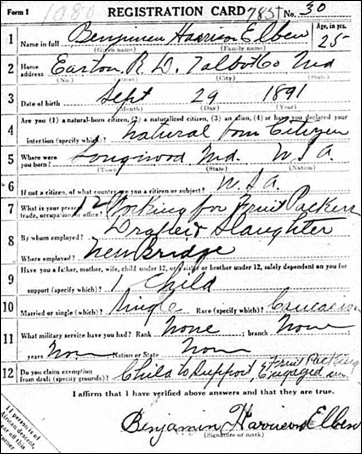 Form 1 1080 REGISTRATION CARD 785 No. 30
1 Name in full Benjimen Harrison Elben Age, in yrs. 25
(Given name) (Family name)
2 Home address Easton R. D. Talbot Co Md
(City) (State)
3 Date of birth Sept 29 1891
(Month) (Day) (Year)
4 Are you (1) a natural-born citizen, (2) a naturalized citizen, (3) an alien, (4) or have you declared your
intention (specify which)? Natural Born Citizen
5 Where were you born? Longwood Md. U S A.
(Town) (State) (Nation)
6 If not a citizen, of what country are you a citizen or subject? U. S. A.
7 What is your present trade, occupation or office? 12 Working for Fruit Packers
8 By whom employed? Slaughter
Where employed? New Bridge
9 Have you a father, mother, wife, child under 12, or a sister or brother under 12, solely dependent on you for
support (specify which)? 1 Child
10 Married or single (which)? Single Race (specify which)? Caucasian
11 What military service have you had? Rank None ; branch None
years None Nation or State None
12 Do you claim exemption from draft (specify grounds)? Child to Support, Fruit Picking
Engaged in
I affirm that I have verified above answers and that they are true.
Benjamin Harrison Elben
(Signature or mark)
If person is of African descent, tear off this corner